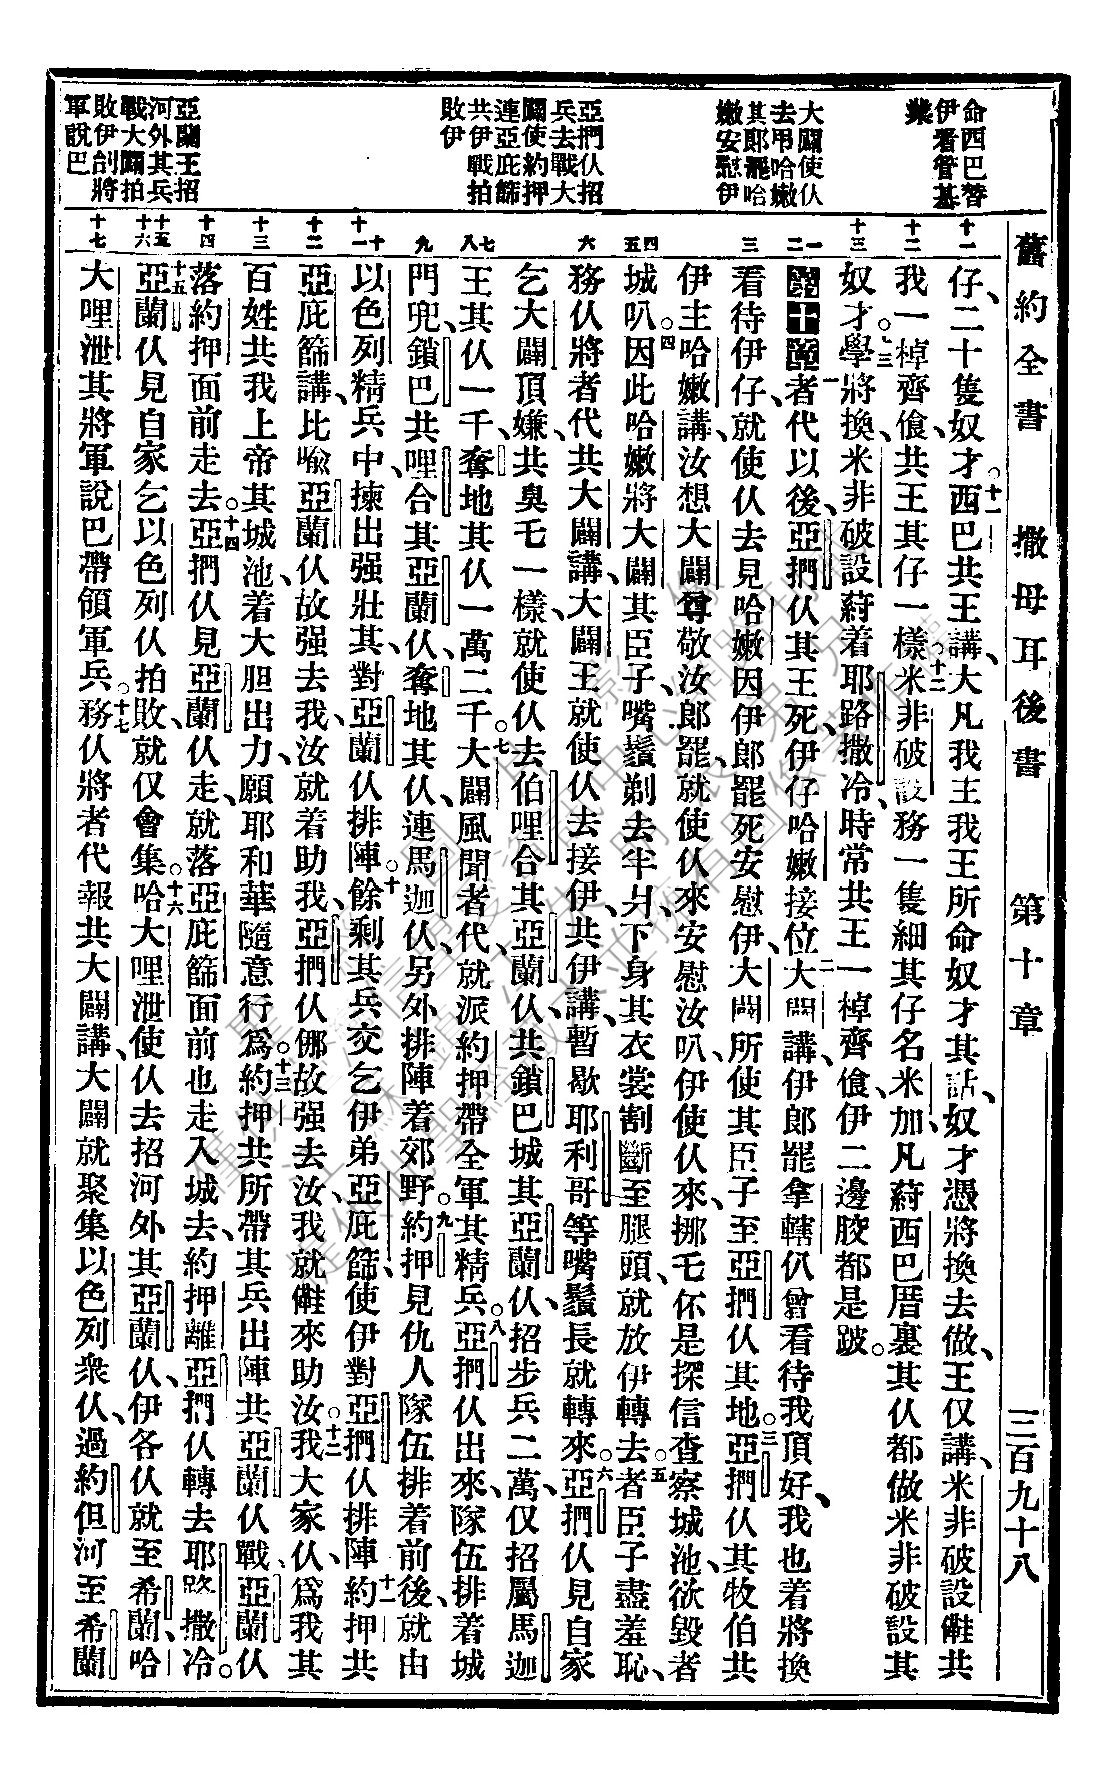 舊約全書 撒母耳後書 第十章 三百九十八
命西巴替
伊看管基
業
大闢使仆
去弔哈嫩
其郎罷哈
嫩安慰伊
亞捫仆招
兵去戰大
闢使約押
連亞庇篩
共伊戰拍
敗伊
亞蘭王招
河外其兵
戰大闢拍
敗伊剖將
軍說巴
十一
十二
十三
一
二
三
四
五
六
七
八
九
十
十一
十二
十三
十四
十五
十六
十七
仔、二十隻奴才。十一西巴共王講、大凡我主我王所命奴才其話、奴才憑將換去做、王仅講、米非破設儺共
我一棹齊飧、共王其仔一樣。十二米非破設務一隻細其仔名米加、凡蔚西巴厝裏其仆都做米非破設其
奴才。十三米非破設蔚着耶路撒冷、時常共王一棹齊飧、伊二邊骹都是跛。
第十章 一者代以後、亞捫仆其王死、伊仔哈嫩接位。二大闢講、伊郎罷拿轄仈曾看待我頂好、我也着將換
看待伊仔、就使仆去見哈嫩、因伊郎罷死安慰伊、大闢所使其臣子至亞捫仆其地。三亞捫仆其牧伯共
伊主哈嫩講、汝想大闢尊敬汝郎罷、就使仆來安慰汝叭、伊使仆來、挪乇伓是探信查察城池、欲毀者
城叭。四因此哈嫩將大闢其臣子、嘴鬚剃去半爿、下身其衣裳割斷至腿頭、就放伊轉去。五者臣子盡羞恥、
務仆將者代共大闢講、大闢王就使仆去接伊、共伊講、暫歇耶利哥、等嘴鬚長就轉來。六亞捫仆見自家
乞大闢頂嫌、共臭乇一樣、就使仆去伯哩合其亞蘭仆、共鎖巴城其亞蘭仆、招步兵二萬、仅招屬馬迦
王其仆一千、奪地其仆一萬二千。七大闢風聞者代、就派約押帶全軍其精兵。八亞捫仆出來、隊伍排着城
門兜、鎖巴共哩合其亞蘭仆、奪地其仆、連馬迦仆、另外排陣着郊野。九約押見仇人隊伍排着前後、就由
以色列精兵中、揀出强壯其、對亞蘭仆排陣。十餘剩其兵交乞伊弟亞庇篩、使伊對亞捫仆排陣。十一約押共
亞庇篩講、比喻亞蘭仆故强去我、汝就着助我、亞捫仆倻故强去汝、我就儺來助汝。十二我大家仆、爲我其
百姓共我上帝其城池、着大胆出力、願耶和華隨意行爲。十三約押共所帶其兵出陣共亞蘭仆戰、亞蘭仆
落約押面前走去。十四亞捫仆見亞蘭仆走、就落亞庇篩面前也走入城去、約押離亞捫仆轉去耶路撒冷。
十五亞蘭仆見自家乞以色列仆拍敗、就仅會集。十六哈大哩泄使仆去招河外其亞蘭仆、伊各仆就至希蘭、哈
大哩泄其將軍說巴帶領軍兵。十七務仆將者代報共大闢講、大闢就聚集以色列衆仆、過約但河至希蘭